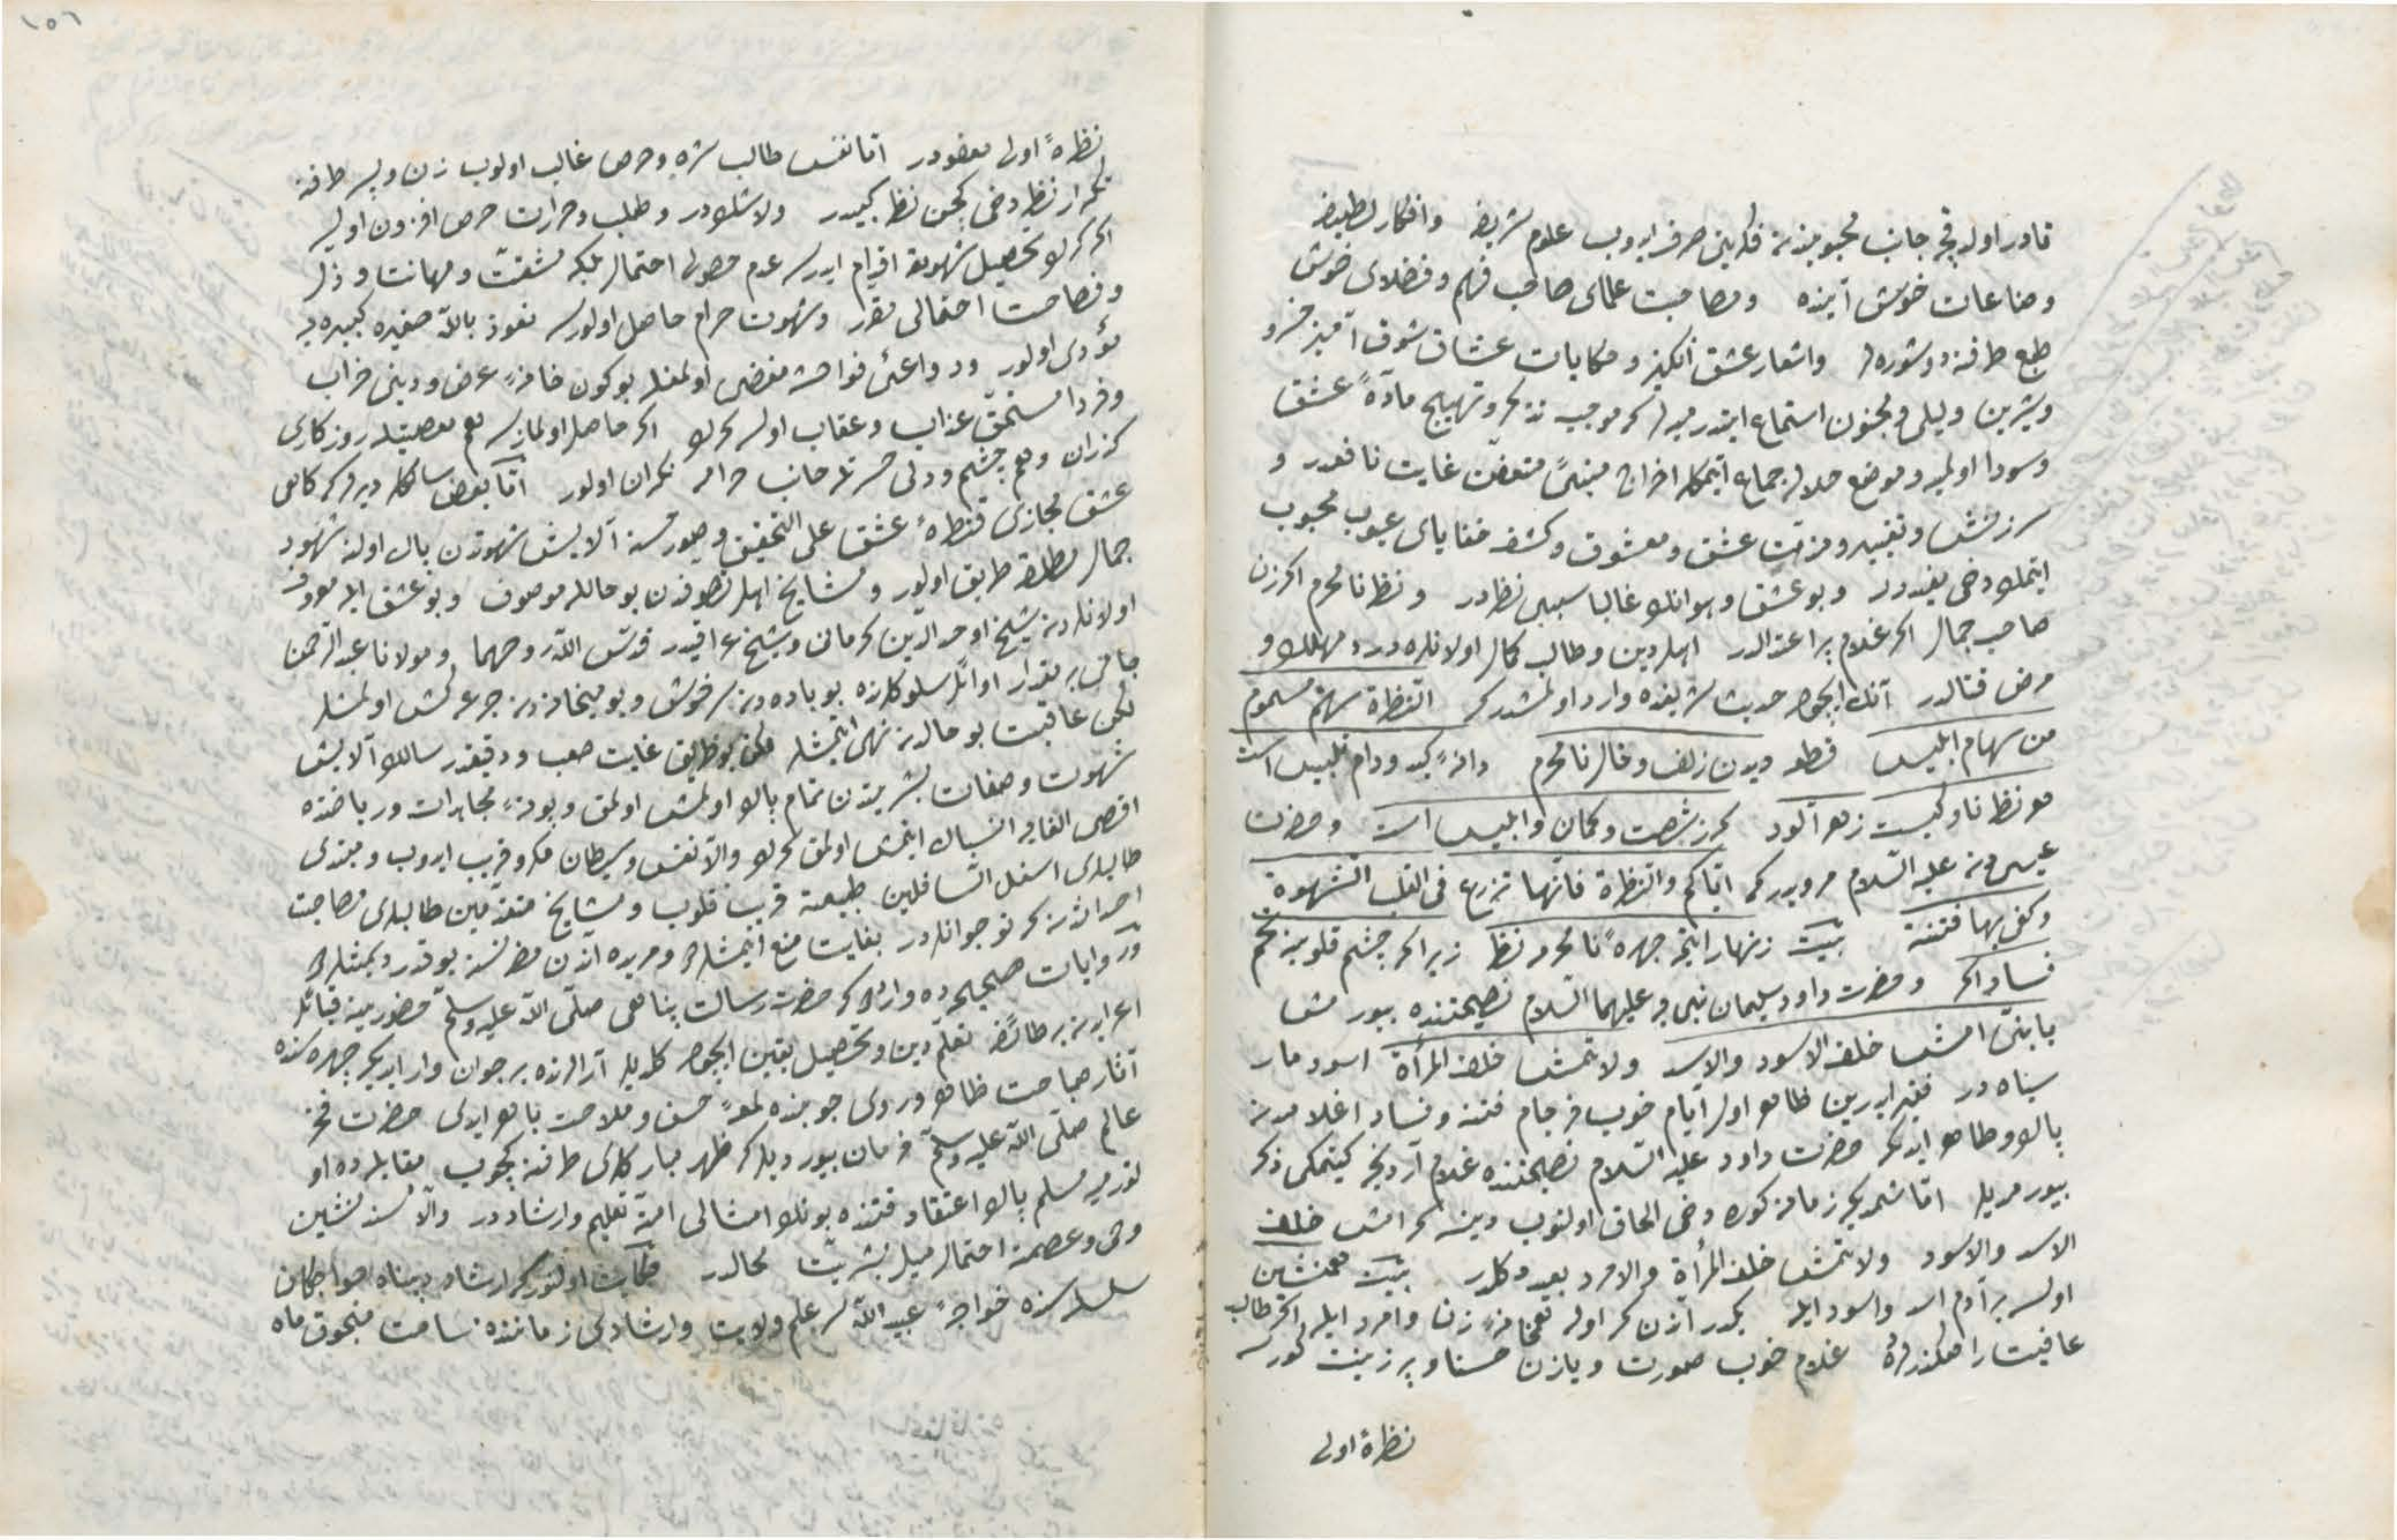 قادر اولدقجه جانب محبوبندن فكرينى صرف ايدوب علوم شريفه وافكار لطيفه
وصناعات خوش آينده ومصاحبت علماى صاحب فهم وفضلاى خوش
طبع طرفنه دوشوره لر واشعار عشق انكيز وحكايات عشاق شوق آميز خسرو
وشيرين وليلى ومجنون استماع ايتدرميه لر كه موجب تذكر وتهييج مادهٔ عشق
وسودا اولميه وموضع حلاله جماع ايتمكله اخراج منىٔ متعفن غايت نافعدر و
سرزنش وتقبيح ومذمت عشق ومعشوق وكشف خفاياى عيوب محبوب
ايتمك دخى مفيددر وبو عشق وهوانك غالبا سببى نظردر ونظر نامحرم اكر زن
صاحب جمال اكر غلام پر اعتدالدر اهل دين وطالب كمال اولانلره درد مهلك و
مرض قتالدر آنك ايچون حديث شريفده وارد اولمشدر كه النظرة سهم مسموم
من سهام ابليس قطعه ديدن زلف وخال نامحرم دانهٔ كيد ودام تلبيس است
هر نظر ناوكيست زهر آلود كه ز شصت وكمان ابليس است وحضرت
عيسى دن عليه السلام مرويدر كه اياكم والنظرة فانها تزرع فى القلب الشهوة
وكفى بها فتنة بيت زنهار ايتمه چهرهٔ نامحرمه نظر زيرا اكر چشم قلوبه تخم
فساد اكر وحضرت داود سليمان نبى يه عليهما السلام نصيحتنده بيورمش
يا بنى امش خلف الاسود والاسد ولا تمش خلف المرأة اسود مار
سياه در فقير ايدرين ظاهر اول ايام خوب فرجام فتنه وفساد اغلامدن
پاك وطاهر ايدى كه حضرت داود عليه السلام نصيحتنده غلام آردنجه كيتمكى ذكر
بيورمديلر اما شمديكى زمانه كوره دخى الحاق اولنوب دينه كه امش خلف
الاسد والاسود ولا تمش خلف المرأة والامرد بعيد دكلدر بيت همنشين
اولسه بر آدم اسد واسود ايله يكدر آزن كه اوله همخانهٔ زن وامرد ايله اكر طالب
عافيت راهكذرده غلام خوب صورت ويا زن حسنا وپر زينت كورسه
نظرهٔ اولى
١٥٦
نظرهٔ اولى معفودر اما نفس طالب شره وحرص غالب اولوب زن وپسر طرفنه
تكرار نظر دخى كچن نظر كبيدر ولا شك در وطلب وحرارت حرص افزون اولور
اكر كرك تحصيل شهوته اقدام ايدرسه عدم حصول احتمال بلكه مشقت ومهانت وذل
وفضاحت احتمالى مقرر وشهوت حرام حاصل اولورسه نعوذ بالله صغيره كبيره يه
مؤدى اولور ودواعئ فواحشه مفضى اولمغله بو كون خانهٔ عرض ودينى خراب
وفردا مستحق عذاب وعقاب اولسه كرك اكر حاصل اولمازسه هم معصيتله روزكارى
كذران وهم چشم ودلى حسرتله جانب حرامه نكران اولور اما بعض سالكلر ديرلر كه كاهى
عشق مجازى قنطرهٔ عشق على التحقيق وصور حسنه آلايش شهوتدن پاك اولنه شهود
جمال مطلقه طريق اولور ومشايخ اهل تصوفدن بو حالله موصوف وبو عشق ايله معروف
اولانلردن شيخ اوحد الدين كرمانى وشيخ عراقيدر قدس الله روحهما ومولانا عبد الرحمن
جامى بر مقدار اوائل سلوكلرنده بو باده دن سرخوش وبو ميخانه دن جرعه كش اولمشلر
لكن عاقبت بو حالدن نهى ايتمشلر ملكن بو طريق غايت صعب ودقيقدر سالك آلايش
شهوت وصفات بشريتدن تمام پاك اولمش اولمق وبودنهٔ مجاهدات ورياضتده
اقصى الغايه انسباك ايتمش اولمق كرك والا نفس وشيطان مكر وفريب ايدوب ومبتدى
طالبلرى اسفل السافلين طبيعته قريب قلوب ومشايخ متقدمين طالبلرى مصاحبت
احداثدن كه نوجوانلردر بغايت منع ايتمشلر ومريده آندن مضر نسنه يوقدر ديمشلر
وروايات صحيحه ده وارددر كه حضرت رسالت پناهى صلى الله عليه وسلم حضورينه قبائل
اعرابدن بر طائفه تعلم دين وتحصيل يقين ايچون كلديلر آرالرنده بر جوان وار ايدى كه چهره سنده
آثار صباحت ظاهر وروى خوبنده لمعهٔ حسن وملاحت باهر ايدى حضرت فخر
عالم صلى الله عليه وسلم فرمان بيورديلر كه ظهر مباركلرى طرفنه كچوب مقابله ده او
تورميه مسلم پاك اعتقاد فتنده بونك امثالى امته تعليم وارشاددر والا مسند نشين
وحى وعصمته احتمال ميل بشريت محالدر حكايت اولنور كه ارشاد دستگاه خواجگان
سلسله سنده خواجهٔ عبيد الله سر علم ولايت وارشاديلى زماننده ساحت منجوق ماه